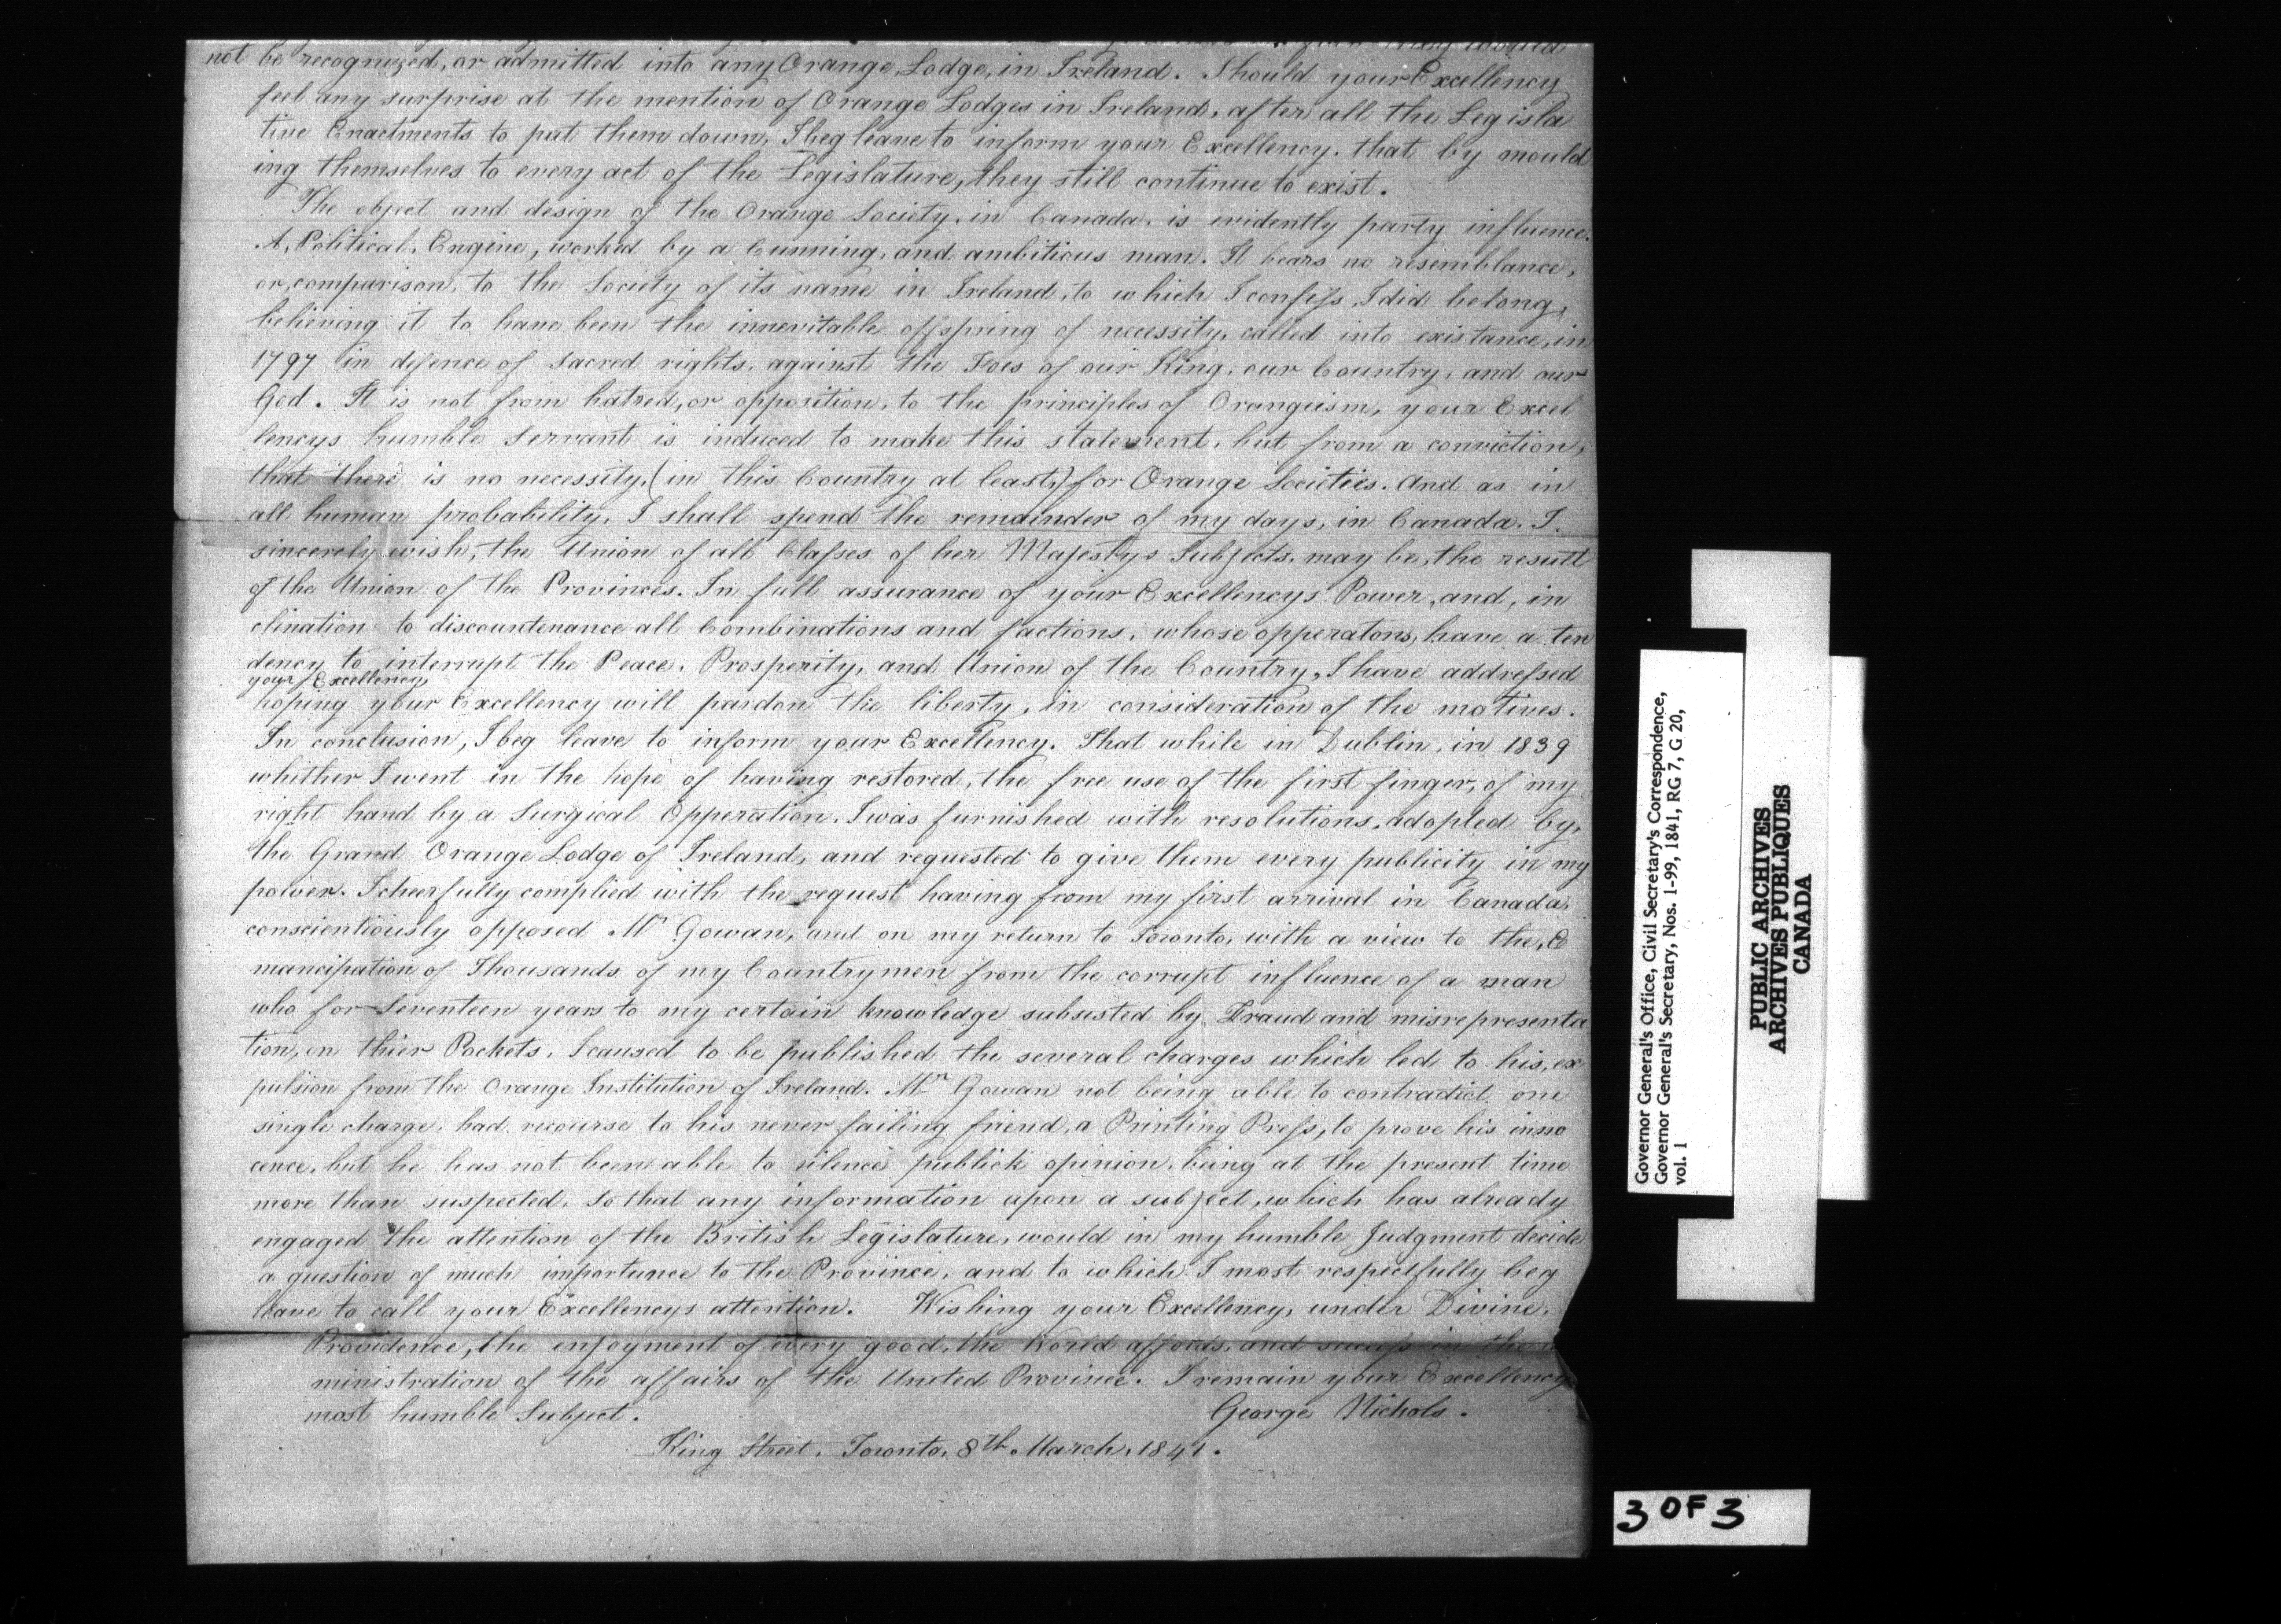 not be recognized, or admitted into any Orange Lodge, in Ireland. Should your Excellency
feel any surprise at the mention of Orange Lodges in Ireland, after all the Legisla
tive Enactments to put them down, I beg leave to inform your Excellency. that by mould
ing themselves to every act of the Legislature, they still continue to exist.
The object and design of the Orange Society. in Canada. is evidently party influence.
A, Political, Engine, worked by a Cunning, and ambitious man. It bears no resemblance,
or, comparison, to the Society of its name in Ireland, to which I confess, I did belong,
believing it to have been the innevitable offspring of necessity, called into existance, in
1797 in defence of sacred rights, against the Foes of our King, our Country, and our
God. It is not from hatred, or opposition, to the principles of Orangeism, your Excel
lencys humble Servant is induced to make this statement, but from a conviction,
that there is no necessity, (in this Country at least,) for Orange Societies. And as in
all human probability, I shall spend the remainder of my days, in Canada. I
sincerely wish, the Union of all Classes of her Majestys Subjects. may be, the result
of the Union of the Provinces. In full assurance of your Excellencys Power, and, in
clination to discountenance all Combinations and factions, whose opperatons, have a ten
dency to interrupt the Peace, Prosperity, and Union of the Country, I have addressed
your Excellency
hoping your Excellency will pardon the liberty, in consideration of the motives.
In conclusion, I beg leave to inform your Excellency. That while in Dublin, in 1839
whither I went in the hope of having restored, the free use of the first finger, of my
right hand by a Surgical Opperation. I was furnished with resolutions, adopted by,
the Grand Orange Lodge of Ireland, and requested to give them every publicity in my
power. I cheerfully complied with the request having from my first arrival in Canada,
conscientiously opposed Mr Gowan, and on my return to Toronto, with a view to the, E
mancipation of Thousands of my Countrymen from the corrupt influence of a man
who for Seventeen years to my certain knowledge subsisted by Fraud and misrepresenta
tion, on thier Pockets. I caused to be published the several charges which led to his, ex
pulsion from the Orange Institution of Ireland. Mr Gowan not being able to contradict one
single charge, had recourse to his never failing friend, a Printing Press, to prove his inno
cence, but he has not been able to silence publick opinion, being at the present time
more than suspected. So that any information upon a subject, which has already
engaged the attention of the British Legislature, would in my humble Judgment decide
a question of much importance to the Province, and to which I most respectfully beg
leave to call your Excellencys attention. Wishing your Excellency, under Divine,
Providence, the enjoyment of every good, the World affords, and success in the
ministration of the affairs of the United Province. I remain your Excellency
most humble Subject. George Nichols.
King Street. Toronto, 8th March, 1841.
Governor General's Office, Civil Secretary's Correspondence,
Governor General's Secretary, Nos. 1-99, 1841, RG 7, G 20,
vol. 1
PUBLIC ARCHIVES
ARCHIVES PUBLIQUES
CANADA
3 OF 3